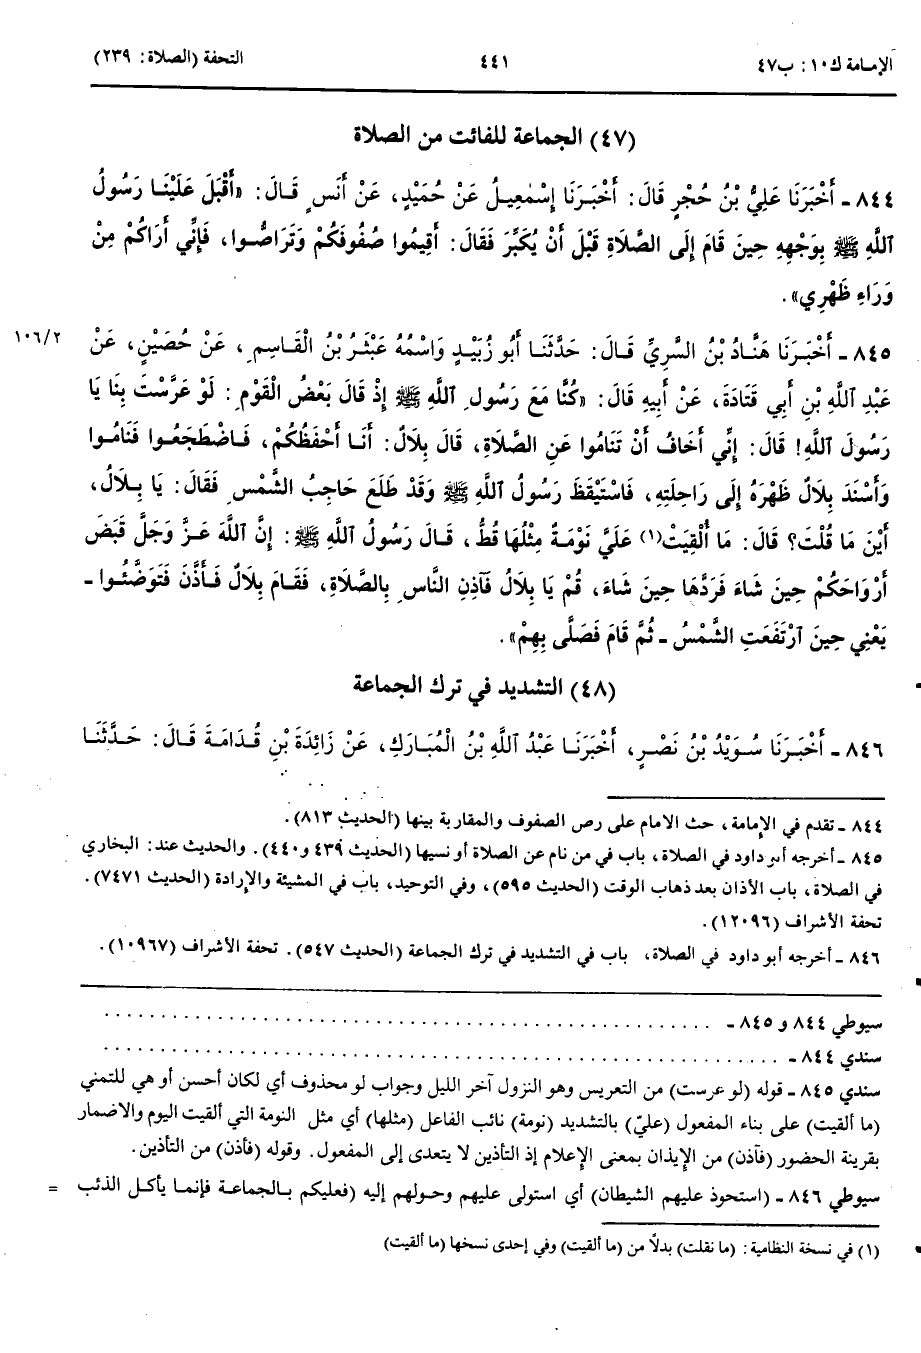 الإمامة ك١٠: ب٤٧ ٤٤١ التحفة (الصلاة: ٢٣٩)
(٤٧) الجماعة للفائت من الصلاة
٨٤٤ - أَخْبَرَنَا عَلِيُّ بْنُ حُجْرٍ قَالَ: أَخْبَرَنَا إِسْمٰعِيلُ عَنْ حُمَيْدٍ، عَنْ أَنَسٍ قَالَ: «أَقْبَلَ عَلَيْنَا رَسُولُ
اللَّهِ ﷺ بِوَجْهِهِ حِينَ قَامَ إِلَى الصَّلَاةِ قَبْلَ أَنْ يُكَبِّرَ فَقَالَ: أَقِيمُوا صُفُوفَكُمْ وَتَرَاصُّوا، فَإِنِّي أَرَاكُمْ مِنْ
وَرَاءِ ظَهْرِي».
٨٤٥ - أَخْبَرَنَا هَنَّادُ بْنُ السَّرِيِّ قَالَ: حَدَّثَنَا أَبُو زُبَيْدٍ وَاسْمُهُ عَبْثَرُ بْنُ الْقَاسِمِ، عَنْ حُصَيْنٍ، عَنْ ١٠٦/٢
عَبْدِ اللَّهِ بْنِ أَبِي قَتَادَةَ، عَنْ أَبِيهِ قَالَ: «كُنَّا مَعَ رَسُولِ اللَّهِ ﷺ إِذْ قَالَ بَعْضُ الْقَوْمِ: لَوْ عَرَّسْتَ بِنَا يَا
رَسُولَ اللَّهِ! قَالَ: إِنِّي أَخَافُ أَنْ تَنَامُوا عَنِ الصَّلَاةِ، قَالَ بِلَالٌ: أَنَا أَحْفَظُكُمْ، فَاضْطَجَعُوا فَنَامُوا
وَأَسْنَدَ بِلَالٌ ظَهْرَهُ إِلَى رَاحِلَتِهِ، فَاسْتَيْقَظَ رَسُولُ اللَّهِ ﷺ وَقَدْ طَلَعَ حَاجِبُ الشَّمْسِ فَقَالَ: يَا بِلَالُ،
أَيْنَ مَا قُلْتَ؟ قَالَ: مَا أُلْقِيَتْ(١) عَلَيَّ نَوْمَةٌ مِثْلُهَا قَطُّ، قَالَ رَسُولُ اللَّهِ ﷺ: إِنَّ اللَّهَ عَزَّ وَجَلَّ قَبَضَ
أَرْوَاحَكُمْ حِينَ شَاءَ فَرَدَّهَا حِينَ شَاءَ، قُمْ يَا بِلَالُ فَآذِنِ النَّاسِ بِالصَّلَاةِ، فَقَامَ بِلَالٌ فَأَذَّنَ فَتَوَضَّئُوا -
يَعْنِي حِينَ ارْتَفَعَتِ الشَّمْسُ - ثُمَّ قَامَ فَصَلَّى بِهِمْ».
(٤٨) التشديد في ترك الجماعة
٨٤٦ - أَخْبَرَنَا سُوَيْدُ بْنُ نَصْرٍ، أَخْبَرَنَا عَبْدُ اللَّهِ بْنُ الْمُبَارَكِ، عَنْ زَائِدَةَ بْنِ قُدَامَةَ قَالَ: حَدَّثَنَا
٨٤٤ - تقدم في الإمامة، حث الامام على رص الصفوف والمقاربة بينها (الحديث ٨١٣).
٨٤٥ - أخرجه أبو داود في الصلاة، باب في من نام عن الصلاة أو نسيها (الحديث ٤٣٩ و٤٤٠). والحديث عند: البخاري
في الصلاة، باب الأذان بعد ذهاب الوقت (الحديث ٥٩٥)، وفي التوحيد، باب في المشيئة والإرادة (الحديث ٧٤٧١).
تحفة الأشراف (١٢٠٩٦).
٨٤٦ - أخرجه أبو داود في الصلاة، باب في التشديد في ترك الجماعة (الحديث ٥٤٧). تحفة الأشراف (١٠٩٦٧).
سيوطي ٨٤٤ و ٨٤٥ - ..........
سندي ٨٤٤ - ..........
سندي ٨٤٥ - قوله (لو عرست) من التعريس وهو النزول آخر الليل وجواب لو محذوف أي لكان أحسن أو هي للتمني
(ما ألقيت) على بناء المفعول (عليّ) بالتشديد (نومة) نائب الفاعل (مثلها) أي مثل النومة التي ألقيت اليوم والاضمار
بقرينة الحضور (فآذن) من الإيذان بمعنى الإعلام إذ التأذين لا يتعدى إلى المفعول. وقوله (فأذن) من التأذين.
سيوطي ٨٤٦ - (استحوذ عليهم الشيطان) أي استولى عليهم وحولهم إليه (فعليكم بالجماعة فإنما يأكل الذئب =
(١) في نسخة النظامية: (ما نقلت) بدلاً من (ما ألقيت) وفي إحدى نسخها (ما ألقيت)